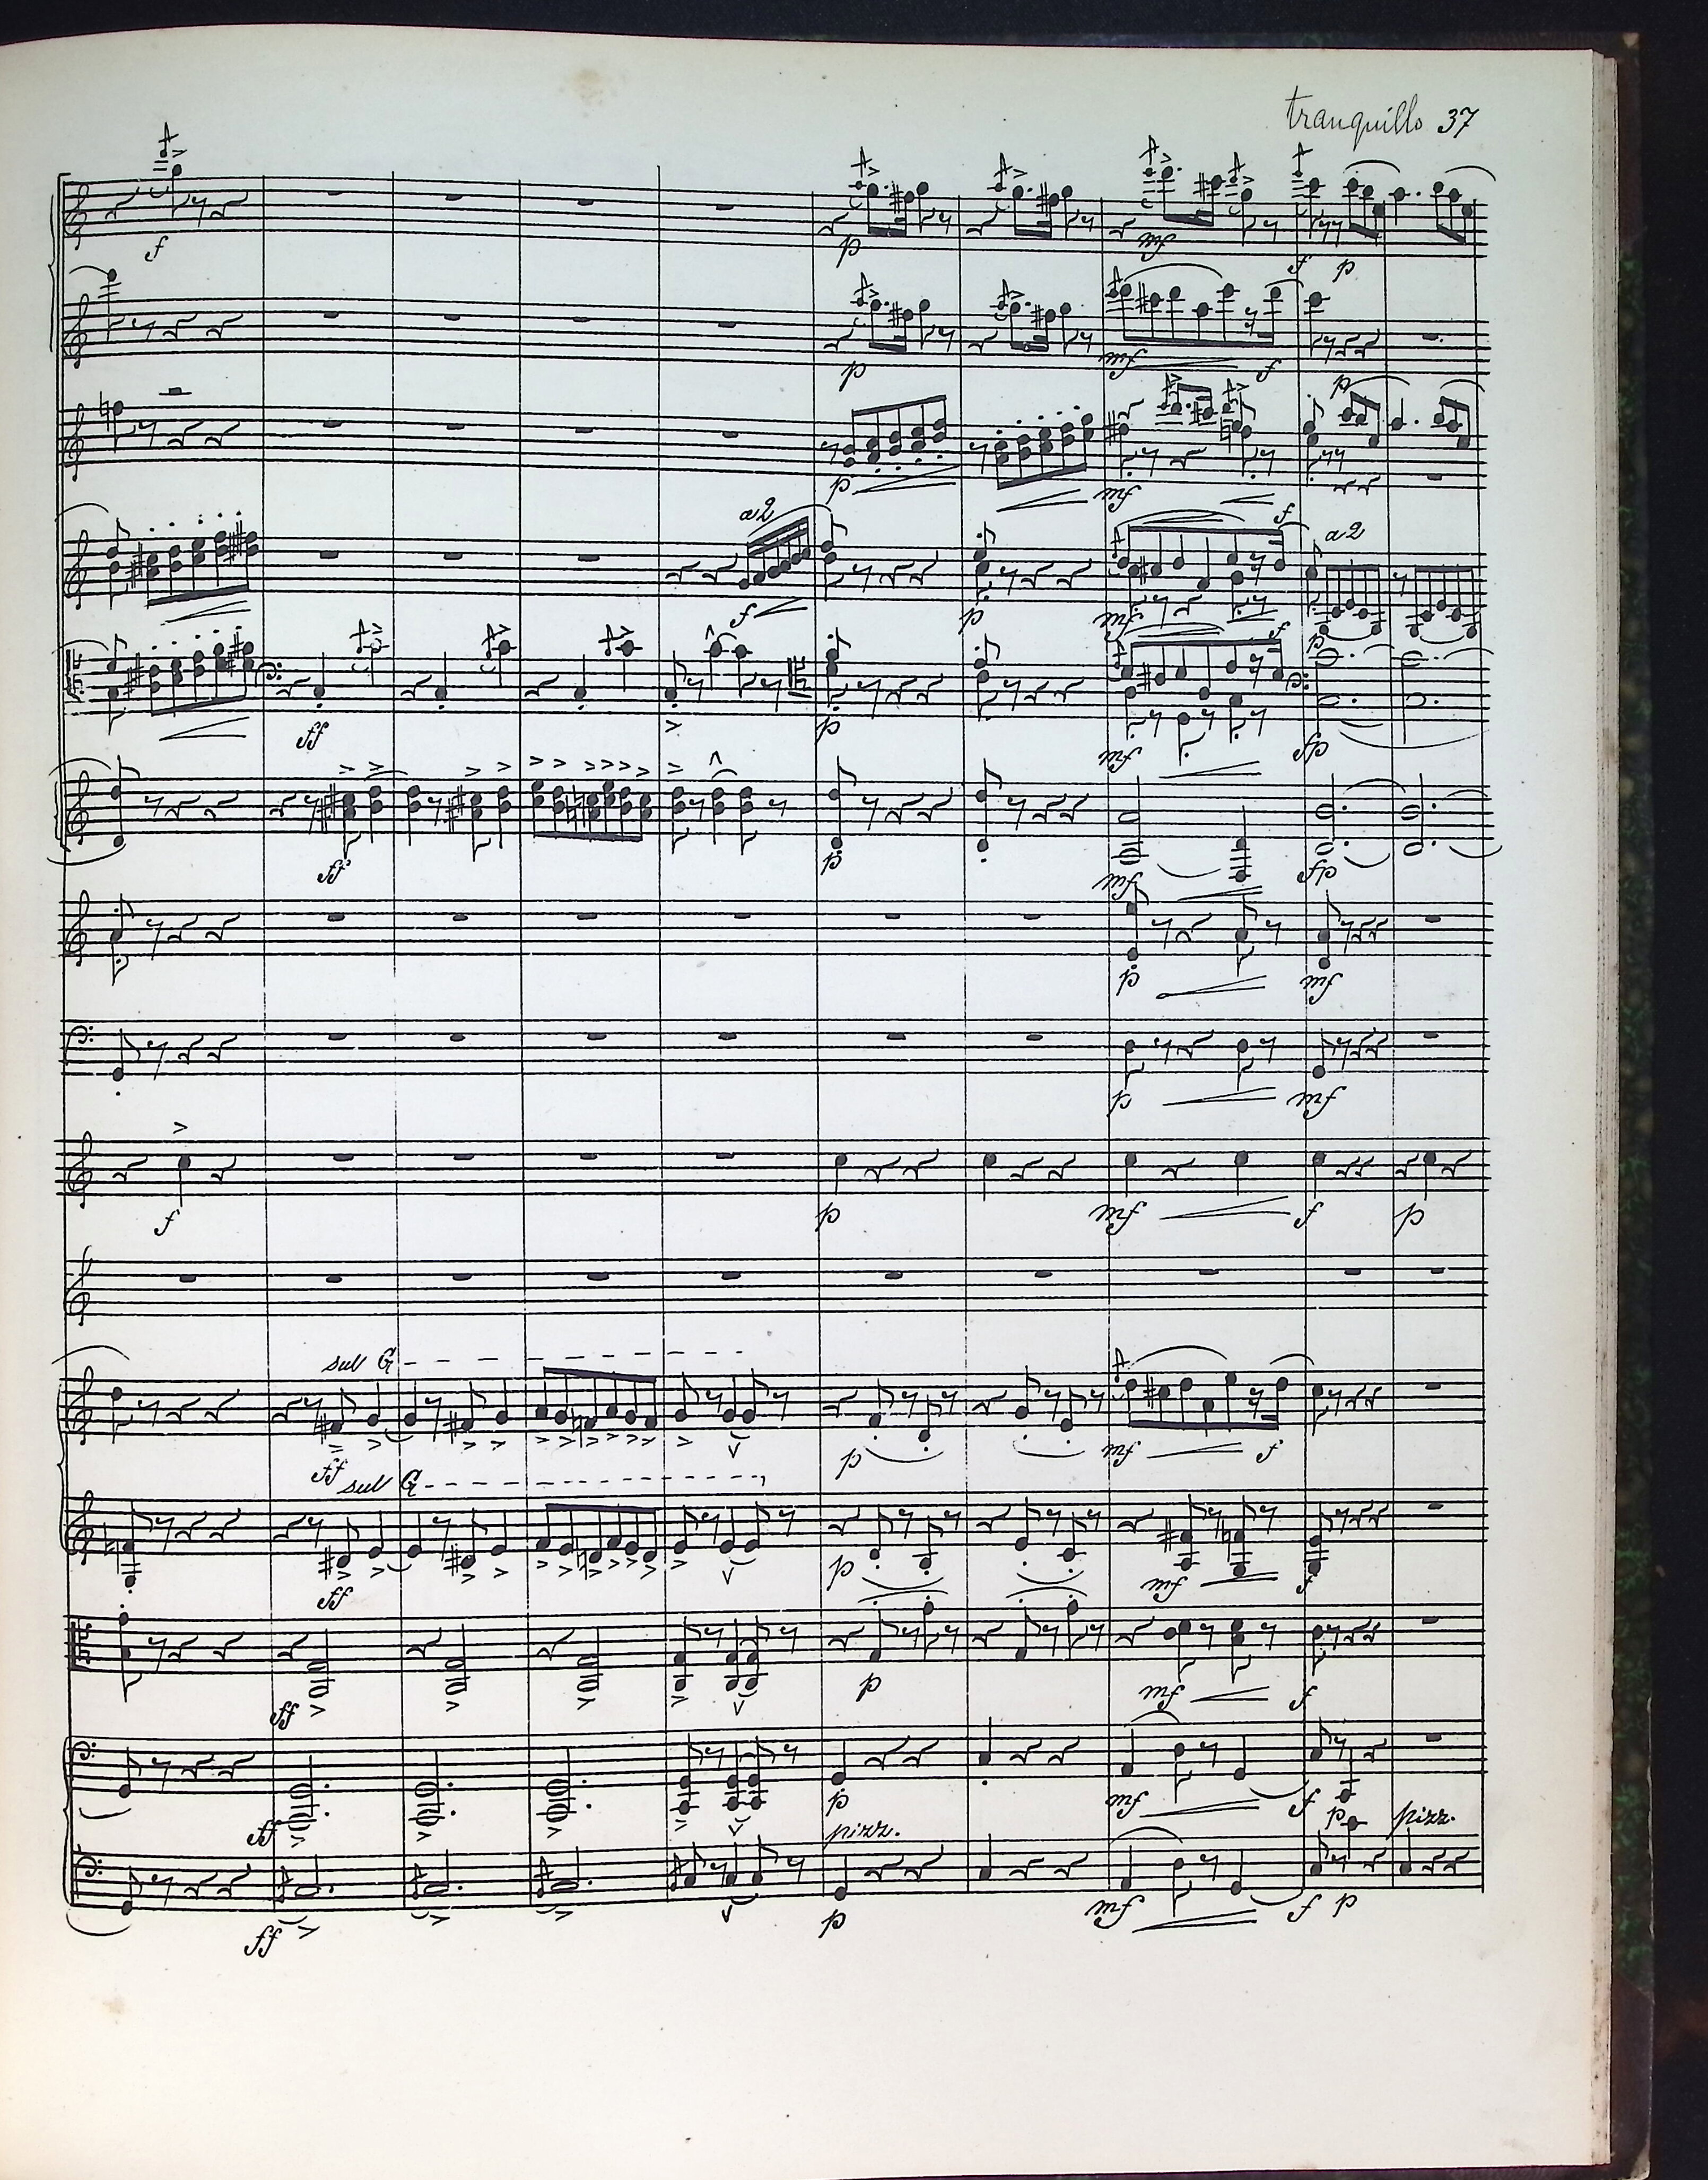 tranquillo 37
f
p p mf f p
p mf f
p
p mf
a2 f a2
f p mf
f
ff p mf p fp
ff p mf fp
p mf
p mf
f p mf f p
sul G
ff p mf f
sul G
ff p mf f
ff p mf f
ff p mf f p
pizz. pizz.
ff p mf f p